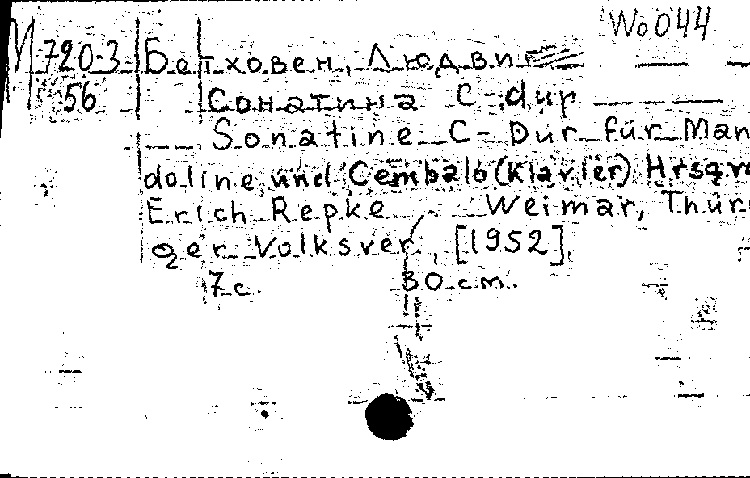 WoO44
М 720-3 Бетховен, Людвиг
56 Сонатина C-dur
Sonatine C-Dur für Man
doline und Cembalo (Klavier) Hrsg v
Erich Repke Weimar, Thür
ger Volksver, [1952].
7 с. 30 см.